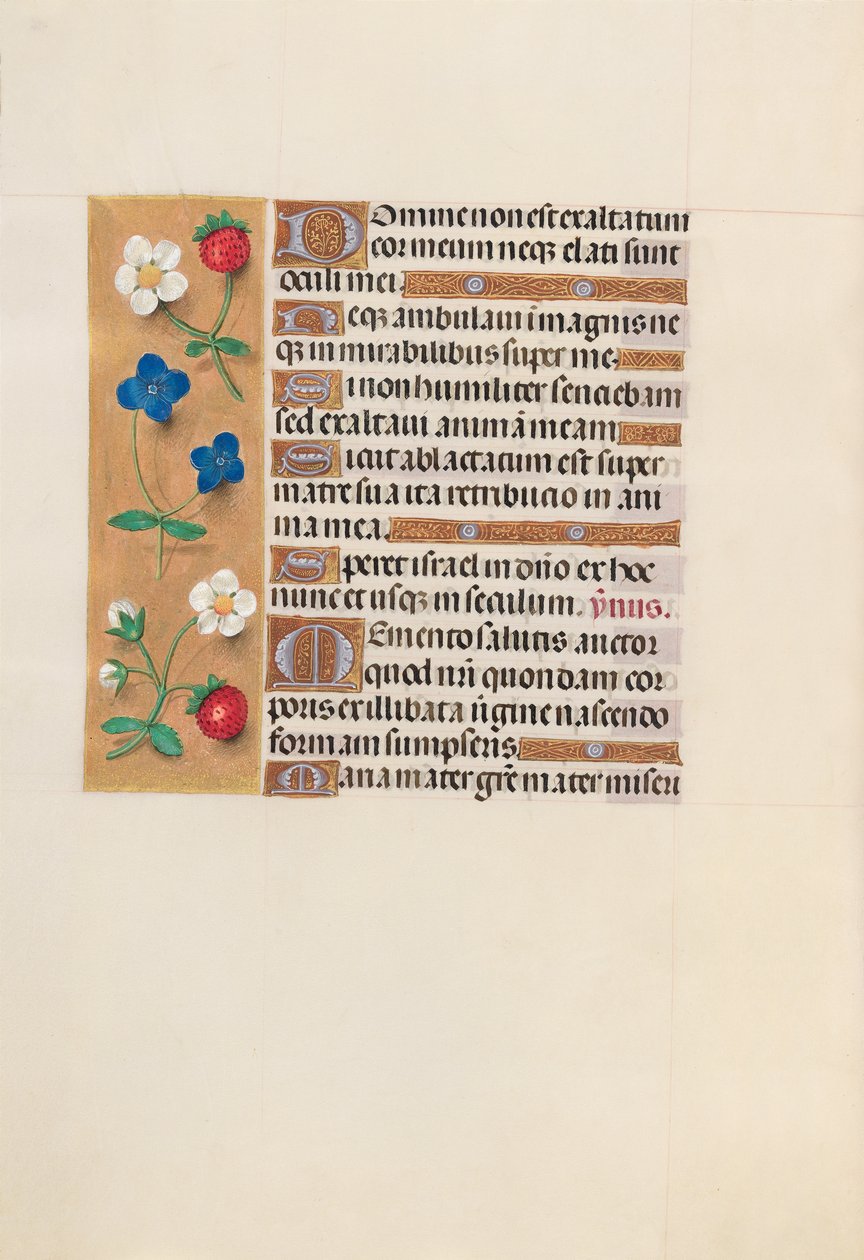 Domine non est exaltatum
cor meum neqꝫ elati sunt
oculi mei.
Neqꝫ ambulaui ī magnis ne
qꝫ in mirabilibus super me.
Si non humiliter senciebam
sed exaltaui animā meam
Sicut ablactatum est super
matre sua ita retribucio in ani
ma mea.
Speret israel in dño ex hoc
nunc et usqꝫ in seculum. ỹnus.
Memento salutis auctor
quod nr̄i quondam cor
poris ex illibata ūgine nascendo
formam sumpseris
Maria mater gr̄e mater miseri